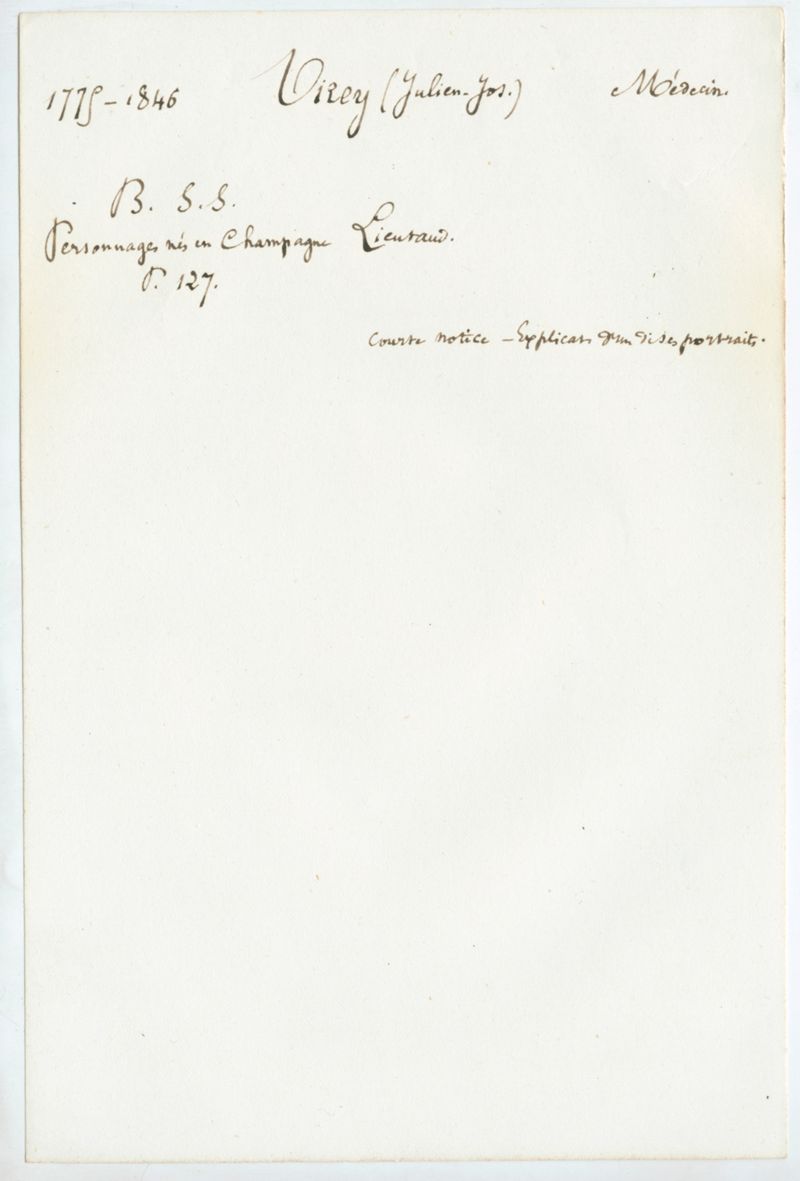 1775-1846 Virey (Julien-Jos.) Médecin.
B. S. S.
Personnages nés en Champagne Lieutaud.
P. 127.
Courte notice - Explicat. d'un de ses portraits.